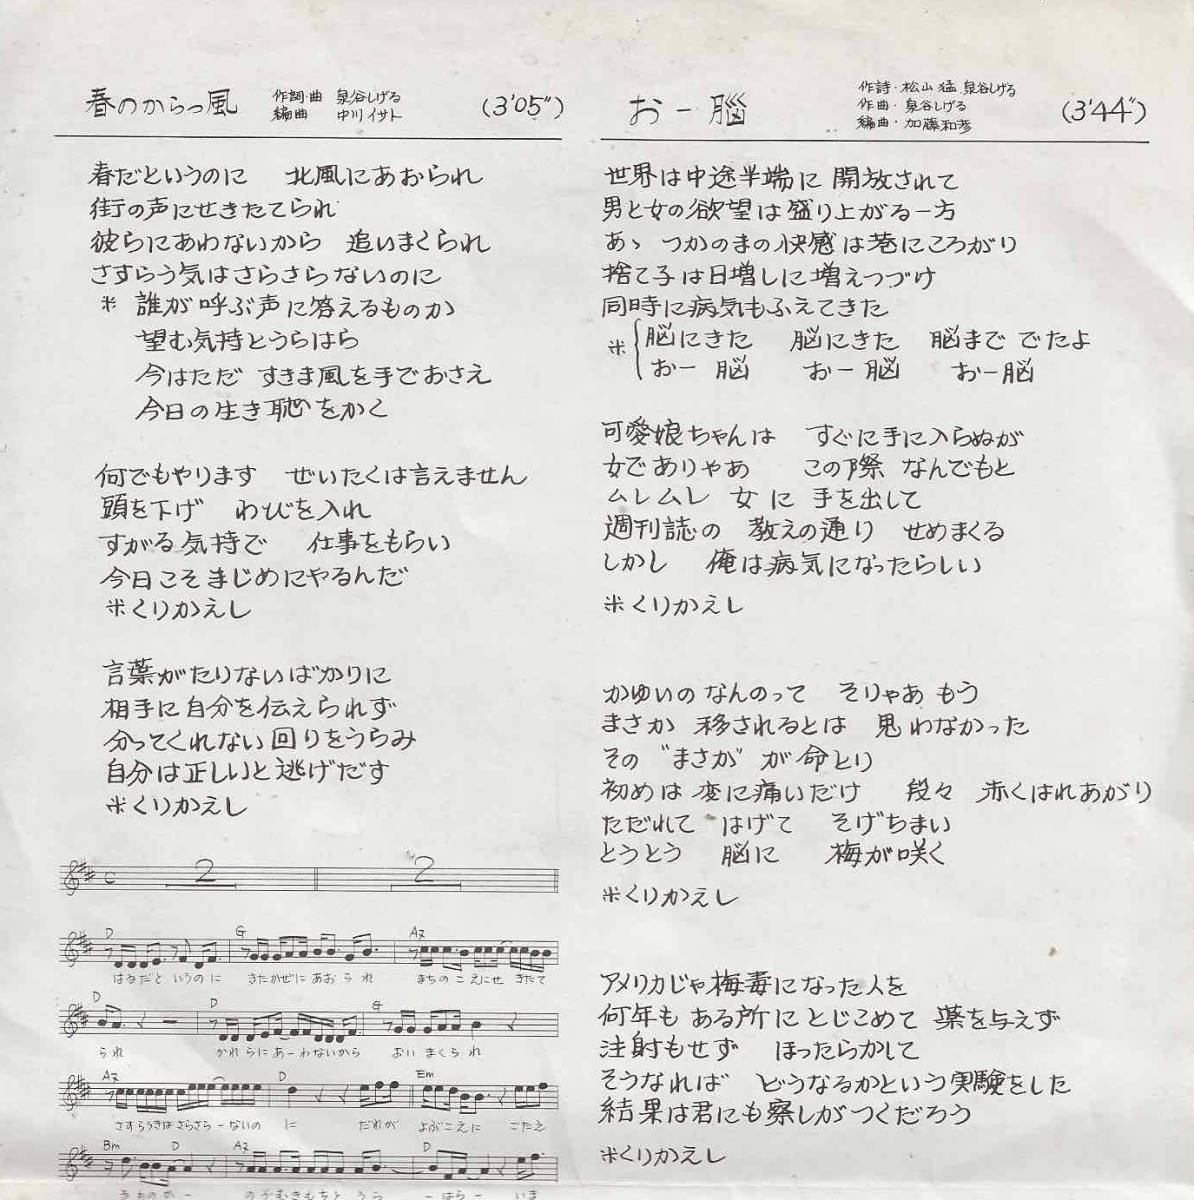 春のからっ風
作詞・曲 泉谷しげる
編曲 中川イサト
(3'05")
春だというのに 北風にあおられ
街の声にせきたてられ
彼らにあわないから 追いまくられ
さすらう気はさらさらないのに
※ 誰が呼ぶ声に答えるものか
望む気持とうらはら
今はただ すきま風を手でおさえ
今日の生き恥をかく
何でもやります ぜいたくは言えません
頭を下げ わびを入れ
すがる気持で 仕事をもらい
今日こそまじめにやるんだ
※くりかえし
言葉がたりないばかりに
相手に自分を伝えられず
分ってくれない回りをうらみ
自分は正しいと逃げだす
※くりかえし
2 2
D G A7
はるだと いうのに きたかぜに あおられ まちのこえにせ きたて
D D G
られ かれらにあーわないから おいまくられ
A7 D Em
さすらうきはさらさらーないの に だれが よぶこえに こたえ
Bm D A7 D
うものかー のぞむきもちと うら ーはらー いま
おー脳
作詩・松山猛 泉谷しげる
作曲・泉谷しげる
編曲・加藤和彦
(3'44")
世界は中途半端に 開放されて
男と女の欲望は盛り上がる一方
あゝ つかのまの快感は巷にころがり
捨て子は日増しに増えつづけ
同時に病気もふえてきた
※ 脳にきた 脳にきた 脳まで でたよ
おー 脳 おー脳 おー脳
可愛娘ちゃんは すぐに手に入らぬが
女でありゃあ この際 なんでもと
ムレムレ 女に 手を出して
週刊誌の 教えの通り せめまくる
しかし 俺は病気になったらしい
※くりかえし
かゆいのなんのって そりゃあ もう
まさか 移されるとは 思わなかった
その “まさか” が命とり
初めは変に痛いだけ 段々 赤くはれあがり
ただれて はげて そげちまい
とうとう 脳に 梅が咲く
※くりかえし
アメリカじゃ梅毒になった人を
何年も ある所に とじこめて 薬を与えず
注射もせず ほったらかして
そうなれば どうなるかという実験をした
結果は君にも察しがつくだろう
※くりかえし